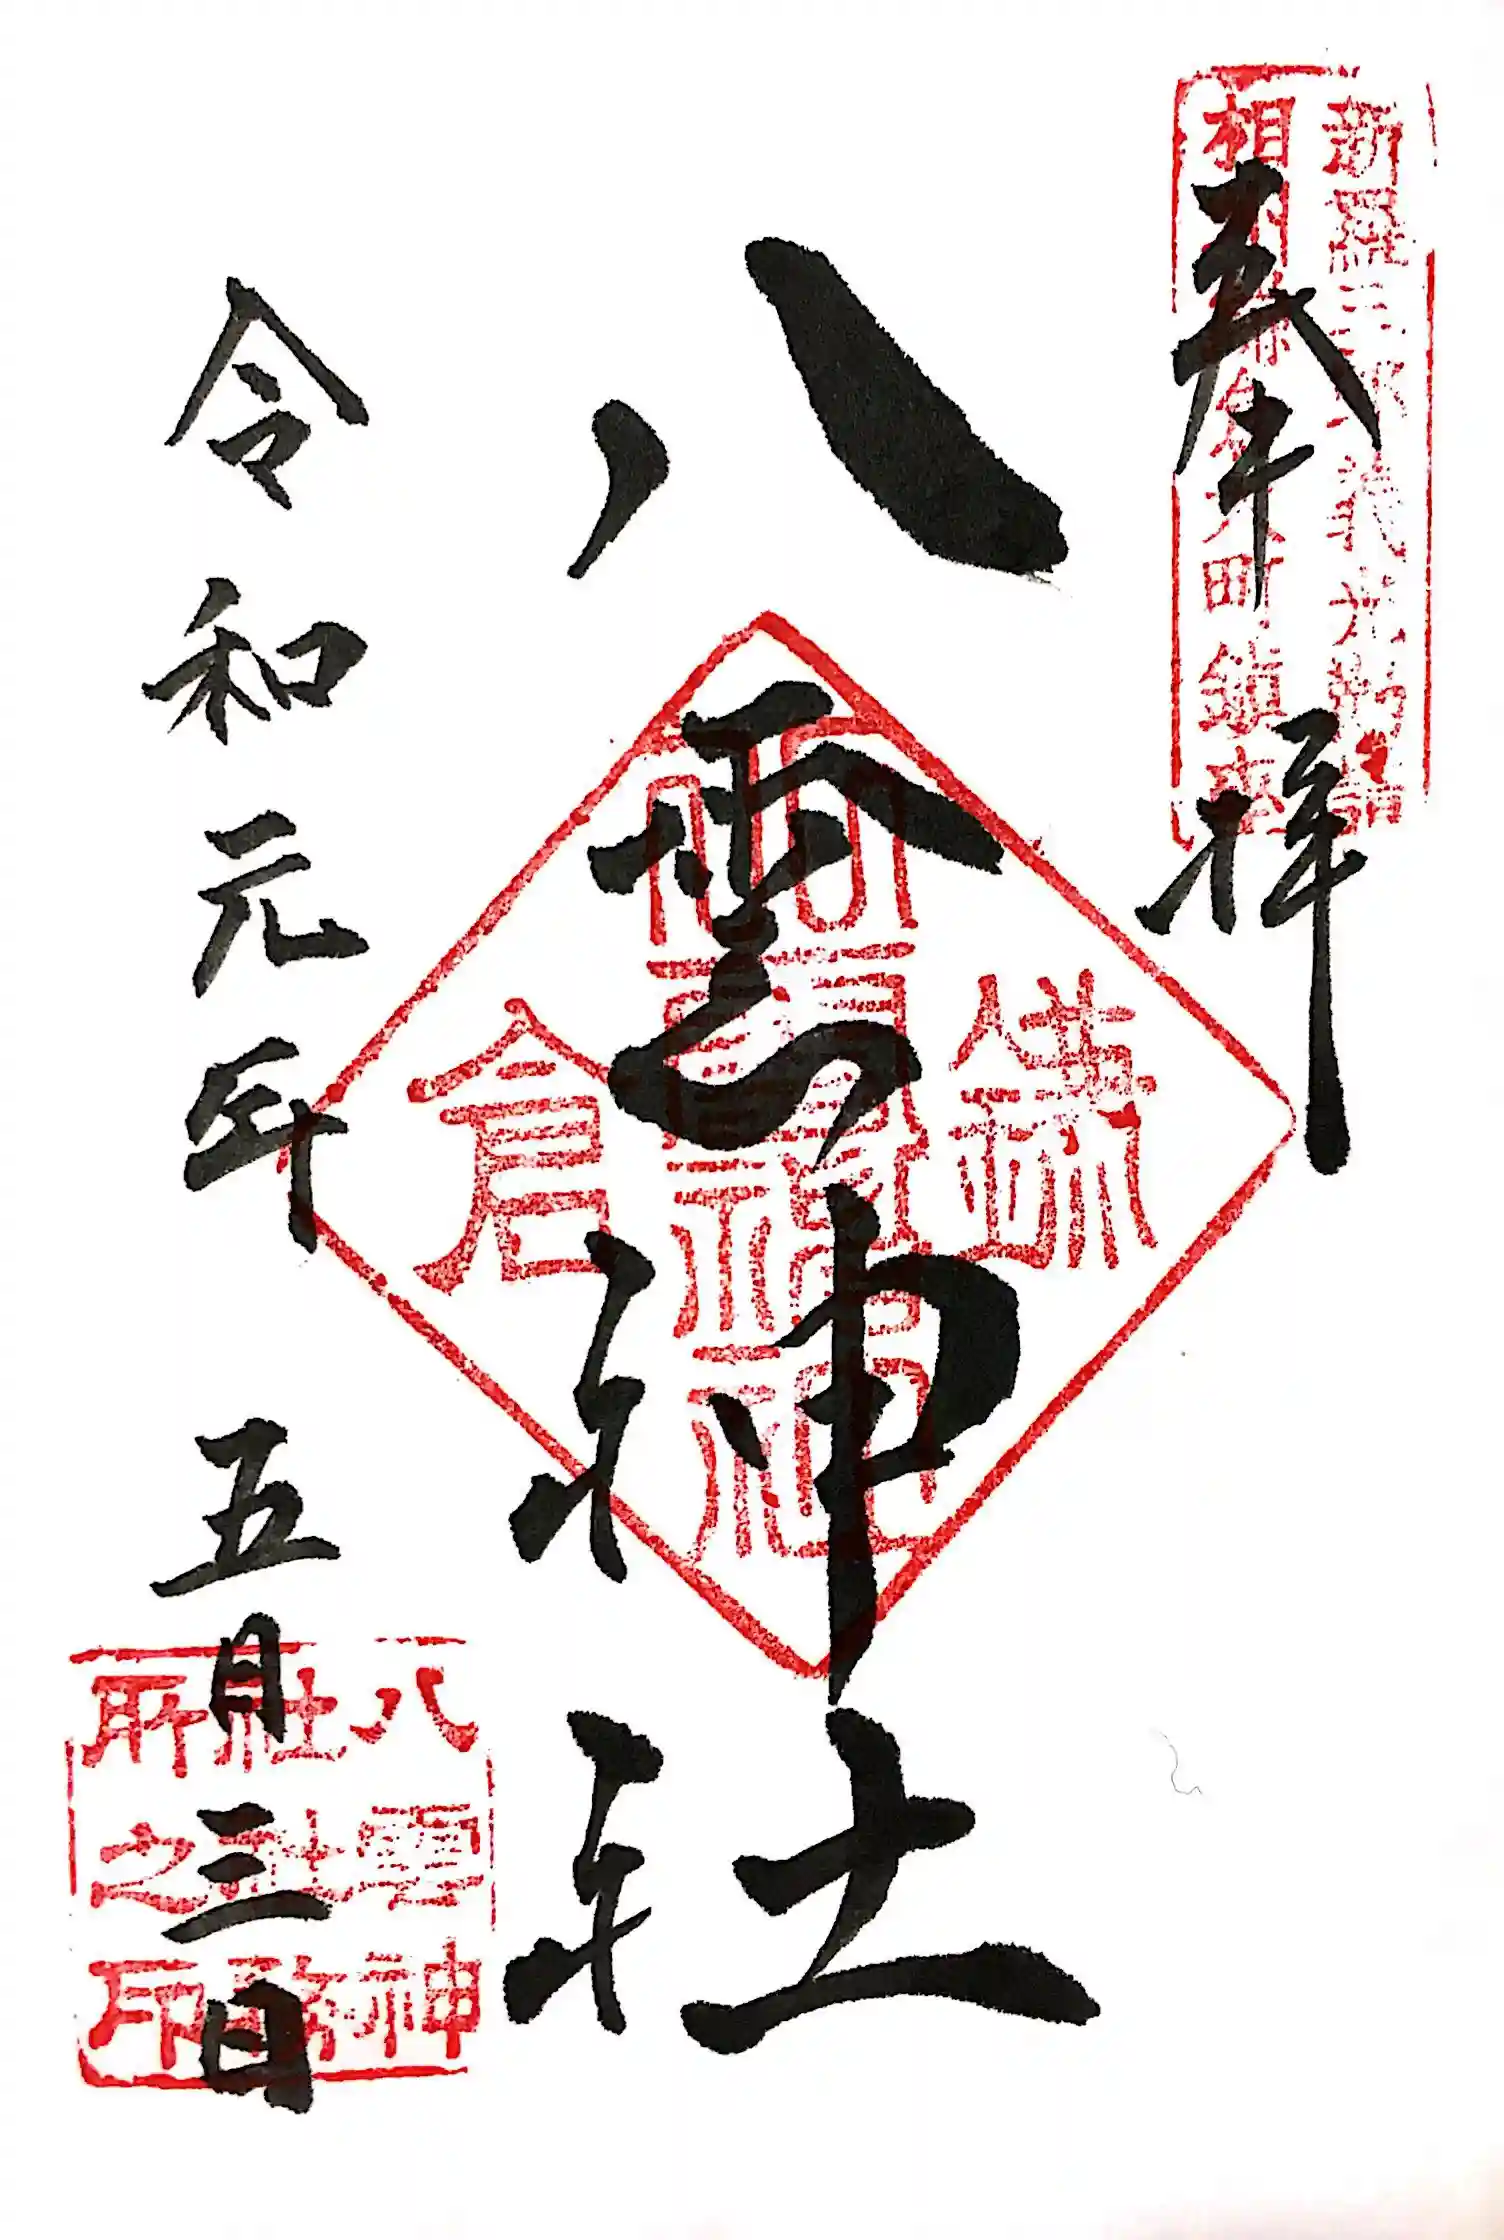 新羅三郎義光勧請
相州鎌倉大町鎮座
奉拝
八雲神社
鎌
八雲神社
倉
令和元年 五月三日
八雲神
社社務
所之印